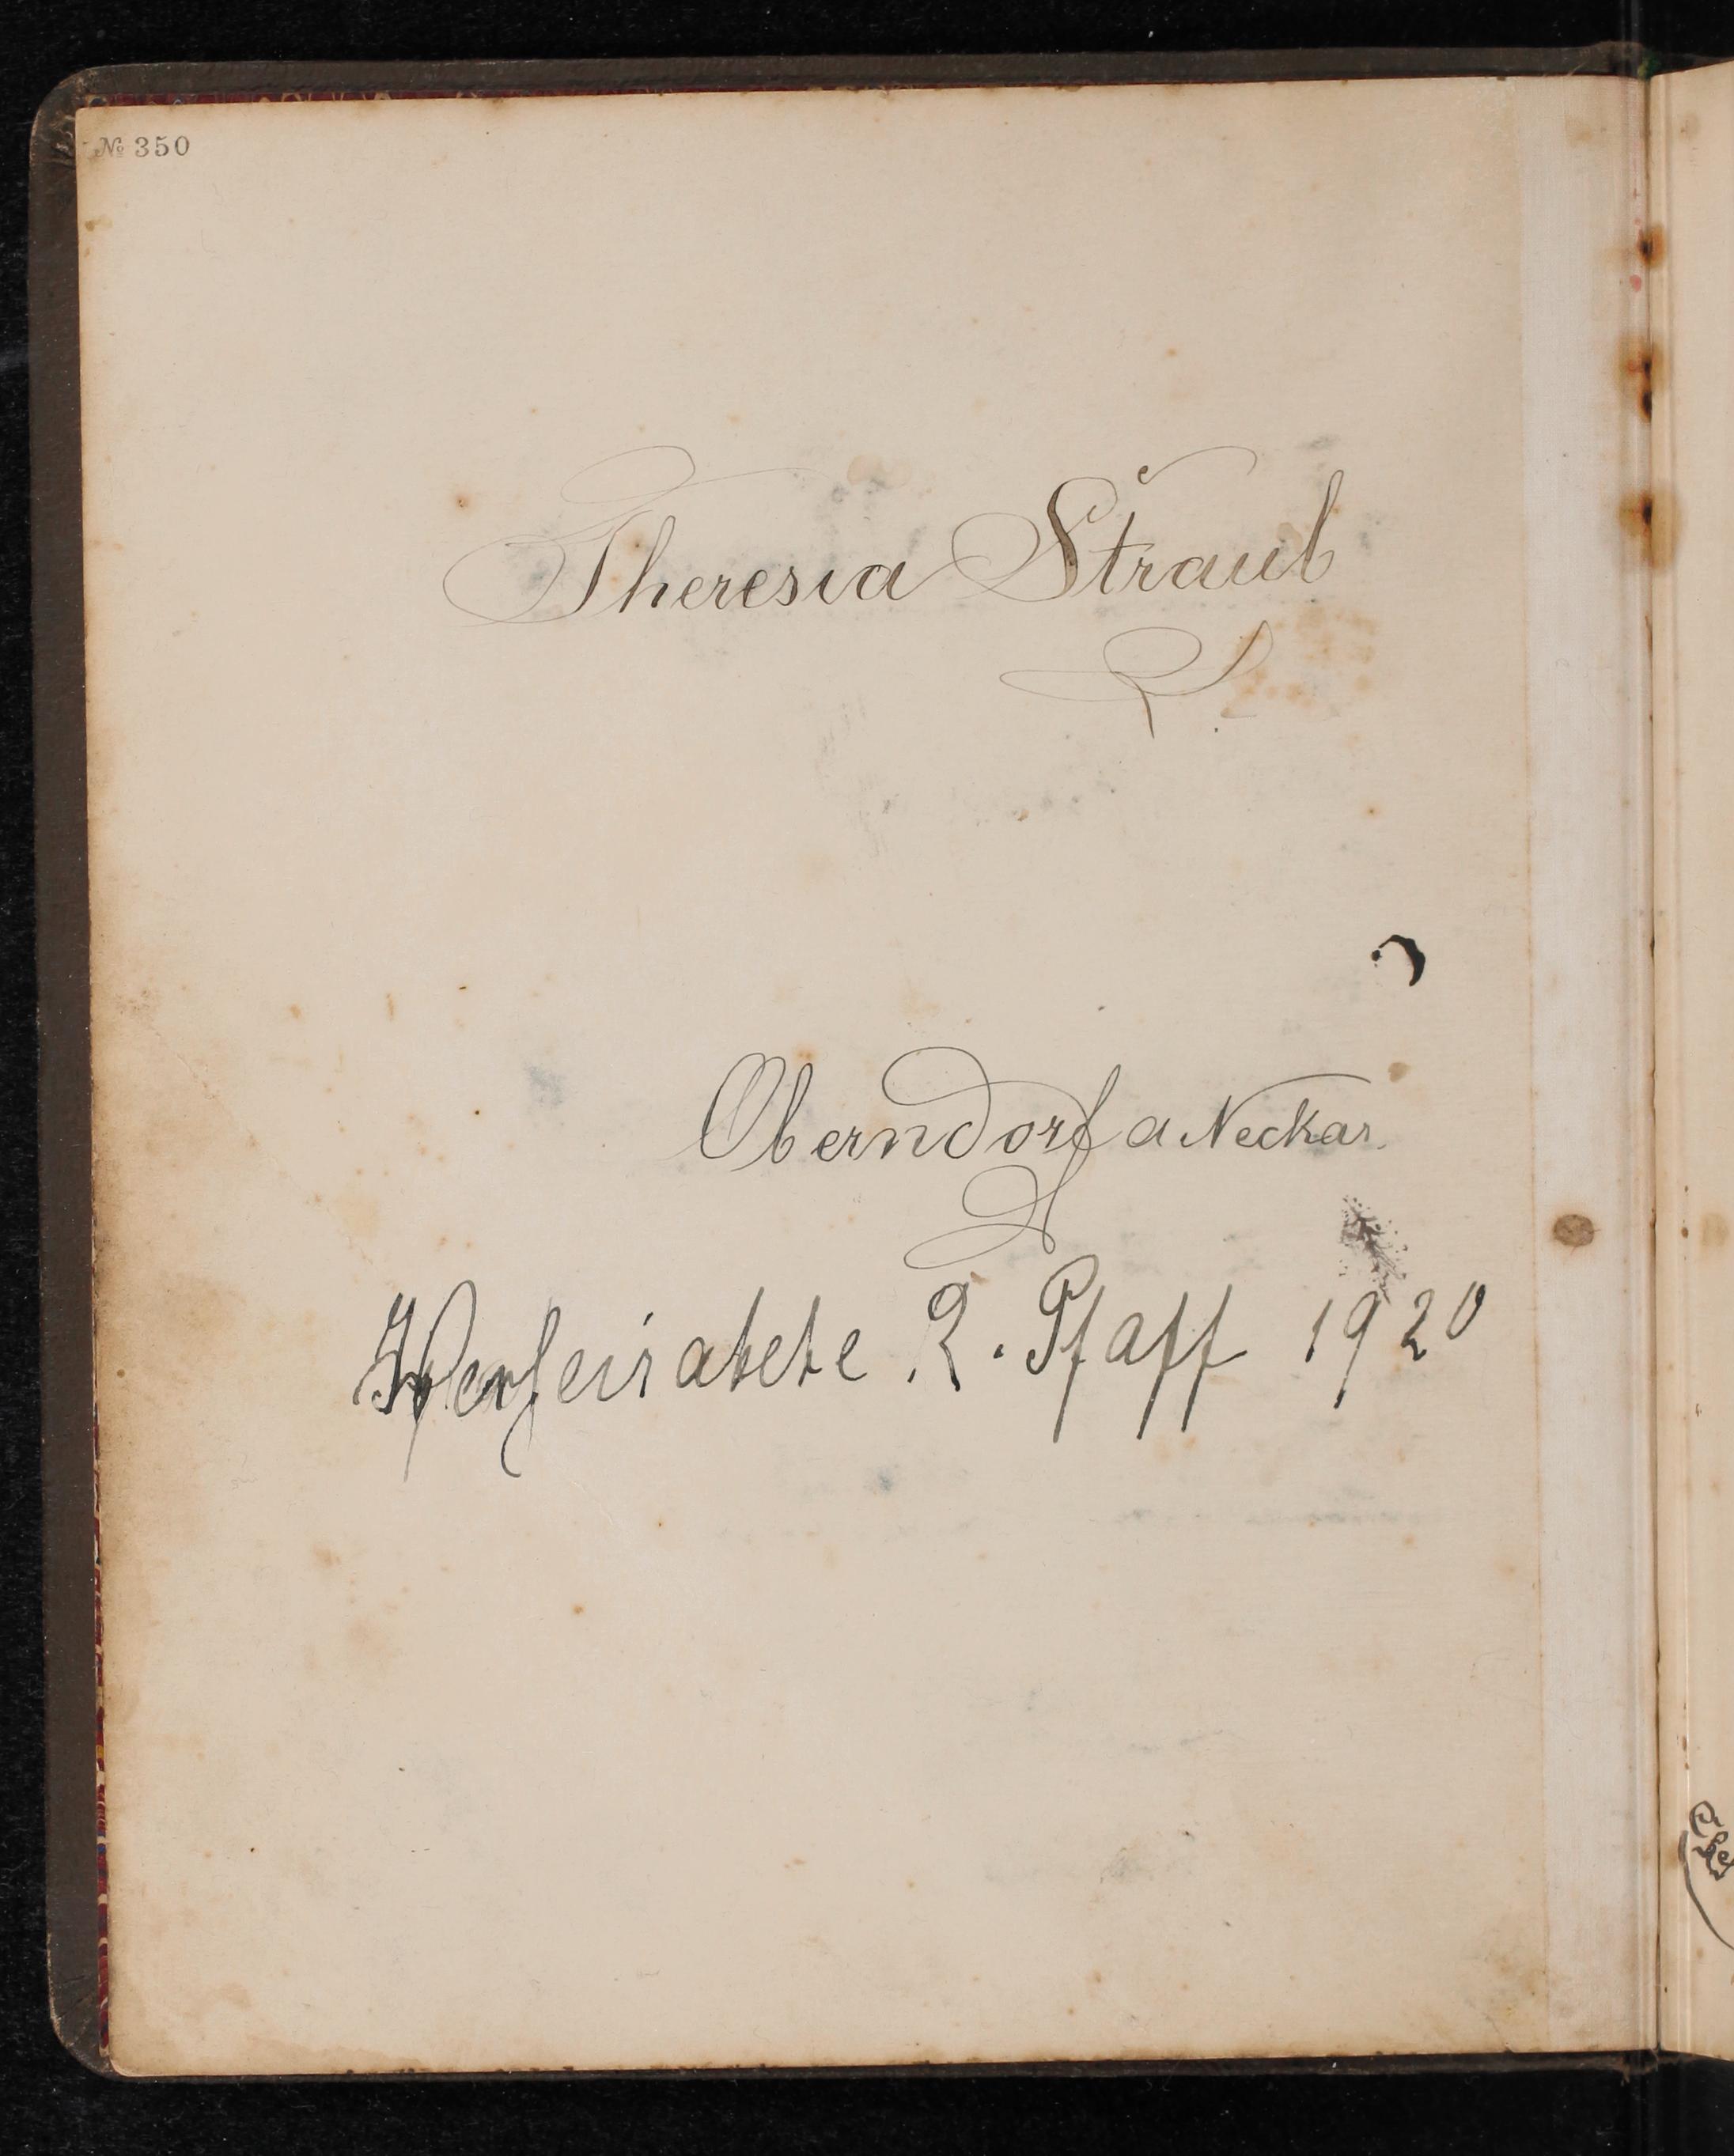 № 350
Theresia Straub
Oberndorf a Neckar.
Verheiratete R. Pfaff 1920